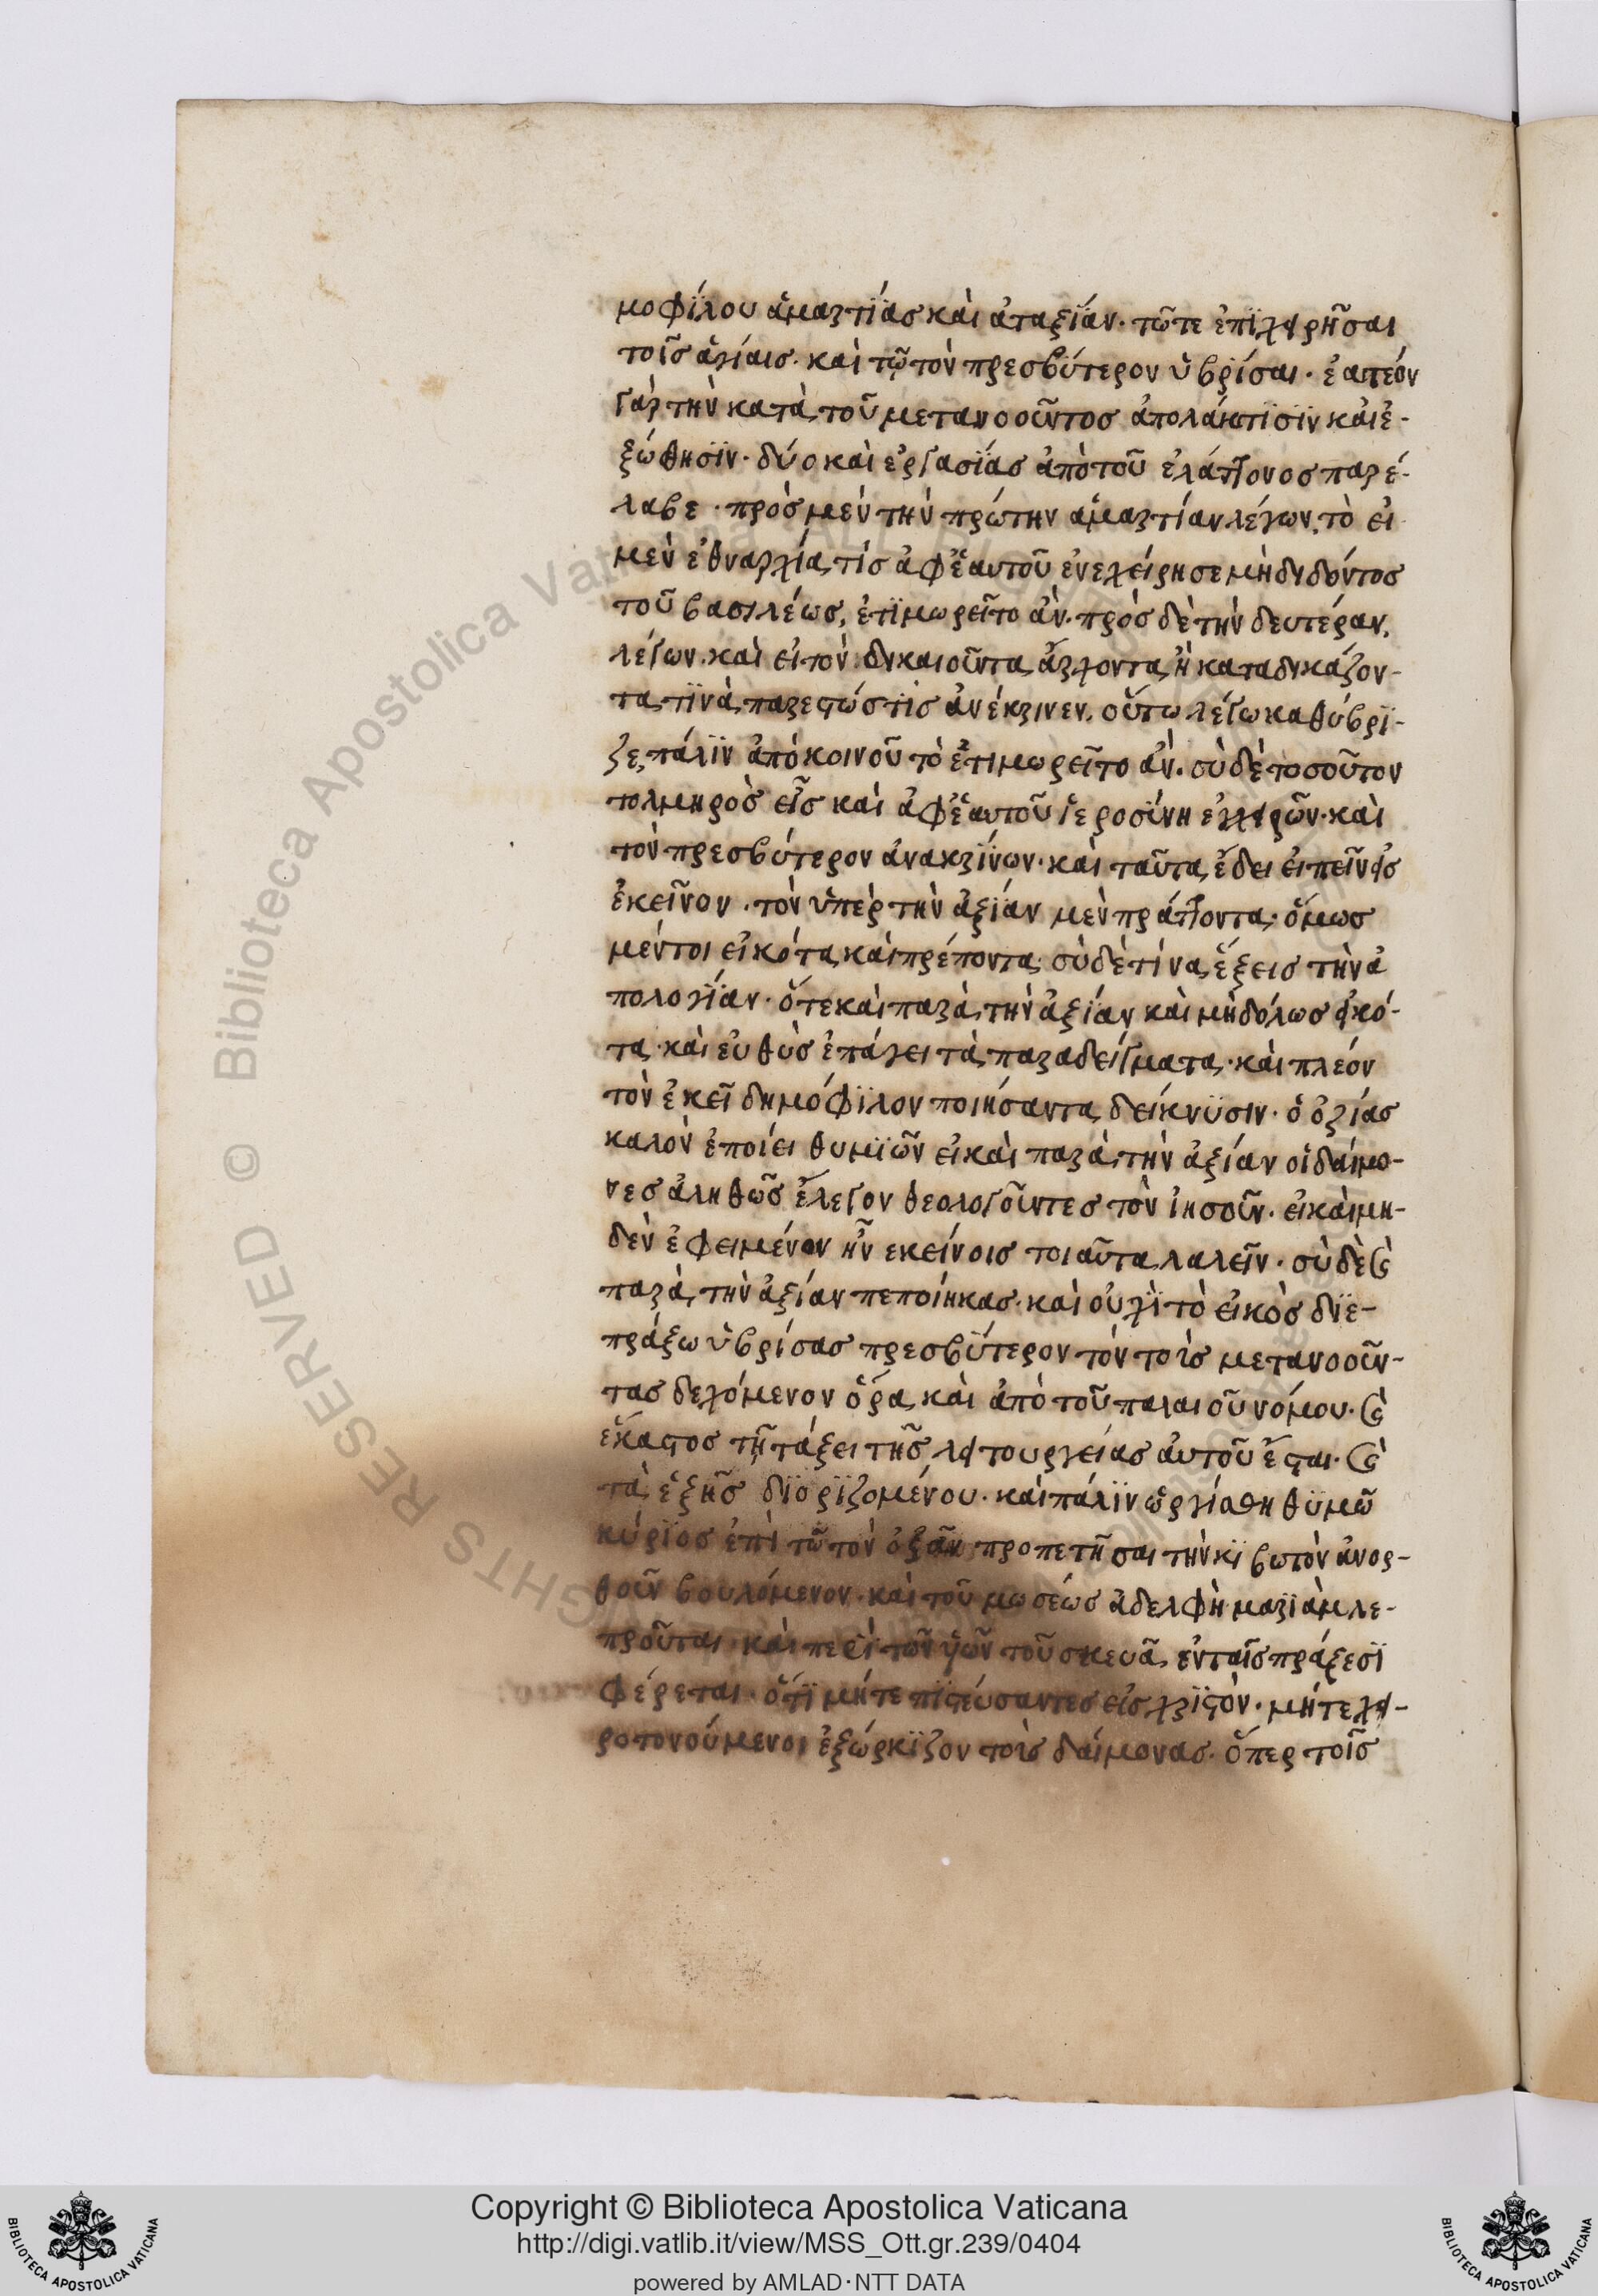 μοφίλου ἁμαρτίας καὶ ἀταξίαν· τῶτε ἐπϊχειρῆσαι
τοῖς ἁγίαις· καὶ τῷ τὸν πρεσβύτερον ὑβρίσαι· ἐατέον
γὰρ τὴν κατὰ τοῦ μετανοοῦντος ἀπολάκτϊσϊν καὶ ἐ-
ξώθησϊν· δύο καὶ ἐργασίας ἀπὸ τοῦ ἐλάττονος παρέ-
λαβε· πρὸς μὲν τὴν πρώτην ἁμαρτίαν λέγων, τὸ εἰ
μὲν ἐθναρχία τίς ἀφἑαυτοῦ ἐνεχείρησε μὴ διδόντος
τοῦ βασιλέως, ἐτϊμωρεῖτο ἄν· πρὸς δὲ τὴν δευτέραν,
λέγων· καὶ εἰ τὸν δικαιοῦντα ἄρχοντα ἢ καταδικάζον-
τα τϊνὰ παρεστώς τϊς ἀνέκρινεν, οὕτω λέγω καθύβρϊ-
ζε, πάλϊν ἀπὸ κοινοῦ τὸ ἐτιμωρεῖτο ἄν· σὺ δὲ τοσοῦτον
τολμηρὸς εἶς καὶ ἀφἑαυτοῦ ἱεροσύνη ἐγχειρῶν· καὶ
τὸν πρεσβύτερον ἀνακρίνων· καὶ ταῦτα ἔδει εἰπεῖν εἰς
ἐκεῖνον· τὸν ὑπὲρ τὴν ἀξίαν μὲν πράττοντα· ὅμως
μέντοι εἰκότα καὶ πρέποντα· σὺ δὲ τίνα ἕξεις τὴν ἀ
πολογίαν· ὅτε καὶ παρὰ τὴν ἀξίαν καὶ μὴδόλως εἰκό-
τα· καὶ εὐθὺς ἐπάγει τὰ παραδείγματα· καὶ πλέον
τὸν ἐκεῖ δημόφϊλον ποιήσαντα δείκνϋσιν· ὁ ὀζίας
καλὸν ἐποίει θυμϊῶν εἰ καὶ παρὰ τὴν ἀξίαν οἱ δαίμο-
νες ἀληθῶς ἔλεγον θεολογοῦντες τὸν ἰησοῦν· εἰ καὶ μη-
δὲν ἐφειμένον ἦν ἐκείνοις τοιαῦτα λαλεῖν· σὺ δὲ ϗ
παρὰ τὴν ἀξίαν πεποίηκας· καὶ οὐχῒ τὸ εἰκὸς δϊε-
πράξω ὑβρίσας πρεσβύτερον τὸν τοὺς μετανοοῦν-
τας δεχόμενον ὅρα καὶ ἀπὸ τοῦ παλαιοῦ νόμου· ϗ
ἕκαστος τῇ τάξει τῆς λειτουργείας αὐτοῦ ἔσται· ϗ
τὰ ἑξῆς δϊορϊζομένου· καὶ πάλϊν ὠργίσθη θϋμῶ
κύρϊος ἐπὶ τῶ τὸν ὀζᾶν προπετῆσαι τὴν κϊβωτὸν ἀνορ-
θοῦν βουλόμενον· καὶ τοῦ μωσέως ἀδελφὴ μαριὰμ λε-
προῦται· καὶ περὶ τῶν ὑῶν τοῦ σκευᾶ, ἐν ταῖς πράξεσϊ
φέρεται· ὅτϊ μήτε πϊστεύσαντες εἰς χρϊστὸν· μήτε χει-
ροτονούμενοι ἐξώρκϊζον τοὺς δαίμονας· ὅπερ τοῖς
Copyright © Biblioteca Apostolica Vaticana
http://digi.vatlib.it/view/MSS_Ott.gr.239/0404
powered by AMLAD·NTT DATA